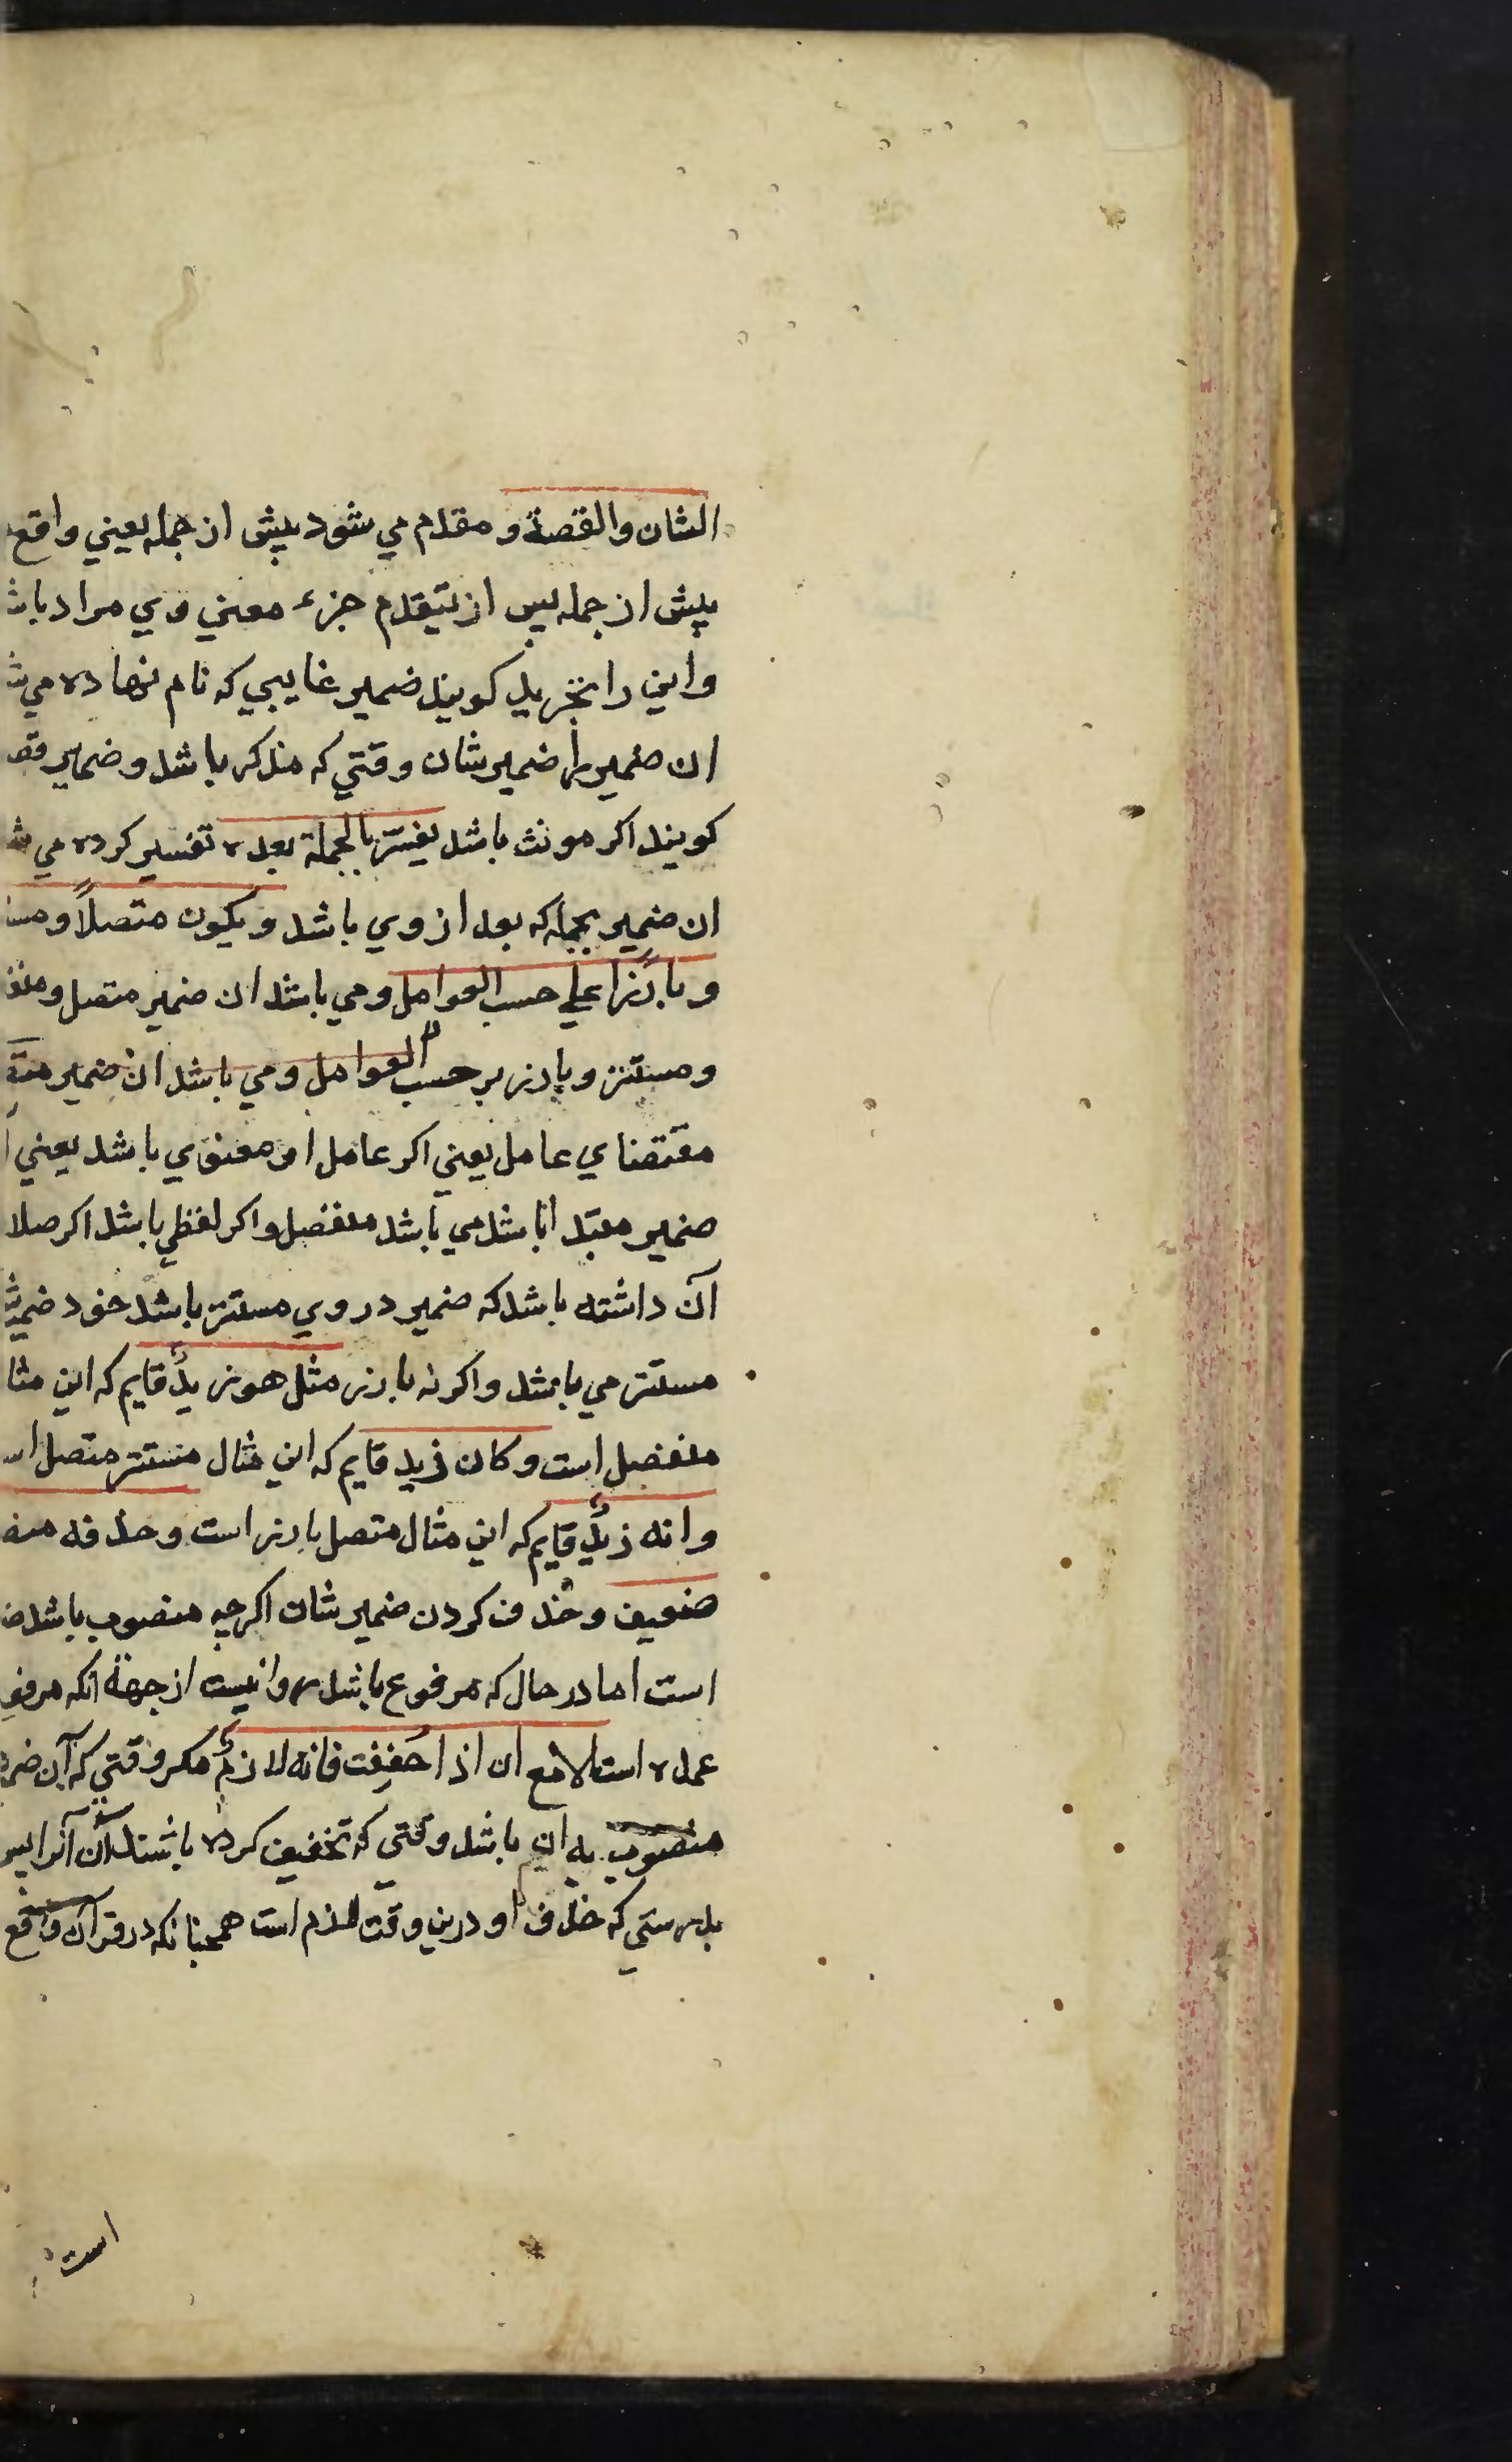 الشان والقصة و مقدم مي شود پيش از جمله يعني واقع
پيش از جمله پس از يتقدم جزء معني وي مراد باشد
واين را تجريد كويند ضمير غايبي كه نام نهاده مي ش
ان ضمير را ضمير شان وقتي كه مذكر باشد و ضمير قص
كويند اكر مونث باشد يفسّر بالجملة بعده تفسير كرده مي ش
ان ضمير بجمله كه بعد از وي باشد و يكون متصلاً و منـ
و بارزًا علي حسب العوامل و مي باشد ان ضمير متصل و منفـ
و مستتر و بارز بر حسب العوامل و مي باشد ان ضمير
مقتضاي عامل يعني اكر عامل او معنوي باشد يعني ا
ضمير مبتدا باشد مي باشد منفصل و اكر لفظي باشد اكر صلا
آن داشته باشد كه ضمير در وي مستتر باشد خود ضمير
مستتر مي باشد و اكر نه بارز مثل هو زيدٌ قايم كه اين مثا
منفصل است و كان زيد قايم كه اين مثال مستتر متصل اسـ
وانه زيدٌ قايم كه اين مثال متصل بارز است و حذفه منـ
ضعيف و حذف كردن ضمير شان اكرچه منصوب باشد ضـ
است اما در حال كه مرفوع باشد روا نيست از جهة انكه مرفو
عمده است الا مع ان اذا خففت فانه لازمٌ مكر وقتي كه آن ضمير
منصوب به ان باشد وقتي كه تخفيف كرده باشند آن آنرا پس
بدرستي كه حذف او درين وقت لازم است همچنانكه در قرآن واقع
است